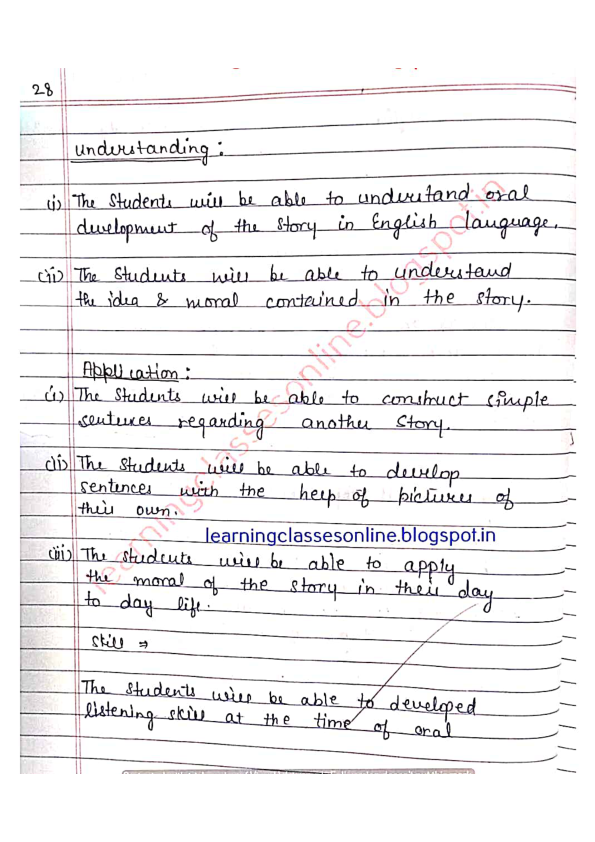 28
Understanding :
(i) The Students will be able to understand oral
development of the story in English language.
(ii) The Students will be able to understand
the idea & moral contained in the story.
Application :
(i) The Students will be able to construct simple
sentences regarding another story.
(ii) The Students will be able to develop
sentences with the help of pictures of
their own.
learningclassesonline.blogspot.in
(iii) The Students will be able to apply
the moral of the story in their day
to day life.
Skill ⇒
The Students will be able to developed
listening skill at the time of oral
learningclassesonline.blogspot.in